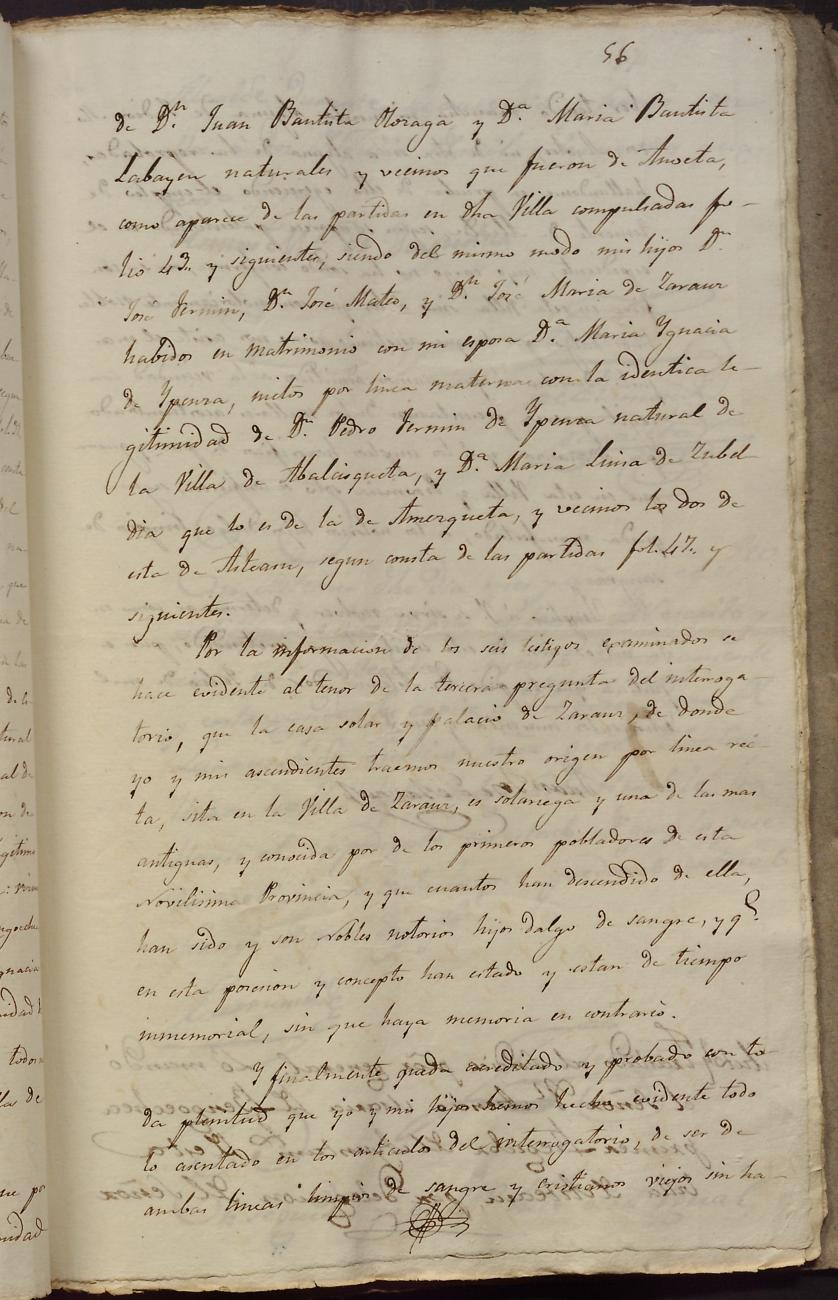 56
de Dn. Juan Bautista Olozaga y Da. Maria Bautista
Labayen naturales y vecinos que fueron de Anoeta,
como aparece de las partidas en dha Villa compulsadas fo-
lio 43. y siguientes, siendo del mismo modo mis hijos Dn.
José Fermin, Dn. José Mateo, y Dn. José Maria de Zarauz
habidos en matrimonio con mi esposa Da. Maria Ygnacia
de Ypenza, nietos por linea materna con la identica le-
gitimidad de Dn. Pedro Fermin de Ypenza natural de
la Villa de Abalcisqueta, y Da. Maria Luisa de Zubel-
dia que lo es de la de Amezqueta, y vecinos los dos de
esta de Asteasu, segun consta de las partidas fol. 47. y
siguientes.
Por la informacion de los seis testigos examinados se
hace evidente al tenor de la tercera pregunta del interroga-
torio, que la casa solar y palacio de Zarauz, de donde
yo y mis ascendientes traemos nuestro origen por linea rec-
ta, sita en la Villa de Zarauz, es solariega y una de las mas
antiguas, y conocida por de los primeros pobladores de esta
Novilisima Provincia, y que cuantos han descendido de ella,
han sido y son Nobles notorios hijos dalgo de sangre, y qe.
en esta posesion y concepto han estado y estan de tiempo
inmemorial, sin que haya memoria en contrario.
Y finalmente queda acreditado y probado con to-
da plenitud que yo y mis hijos hemos hecho evidente todo
lo asentado en los articulos del interrogatorio, de ser de
ambas lineas limpios de sangre y cristianos viejos sin ha-